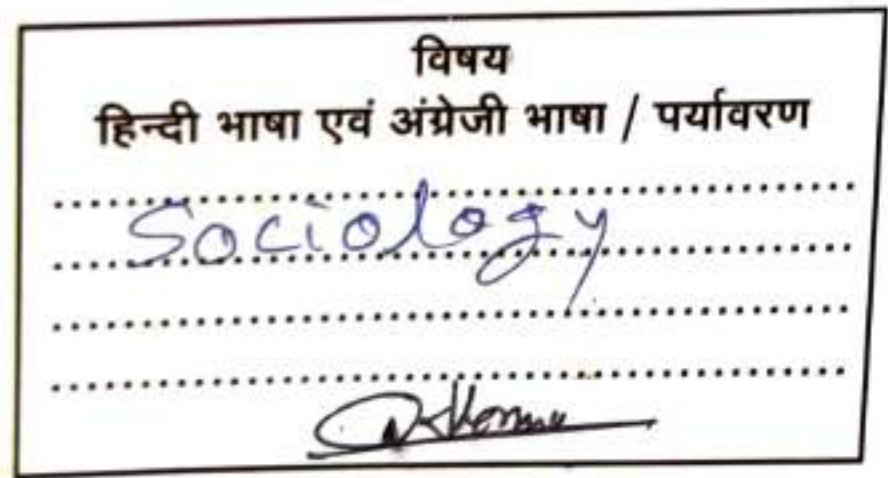 विषय
हिन्दी भाषा एवं अंग्रेजी भाषा / पर्यावरण
Sociology